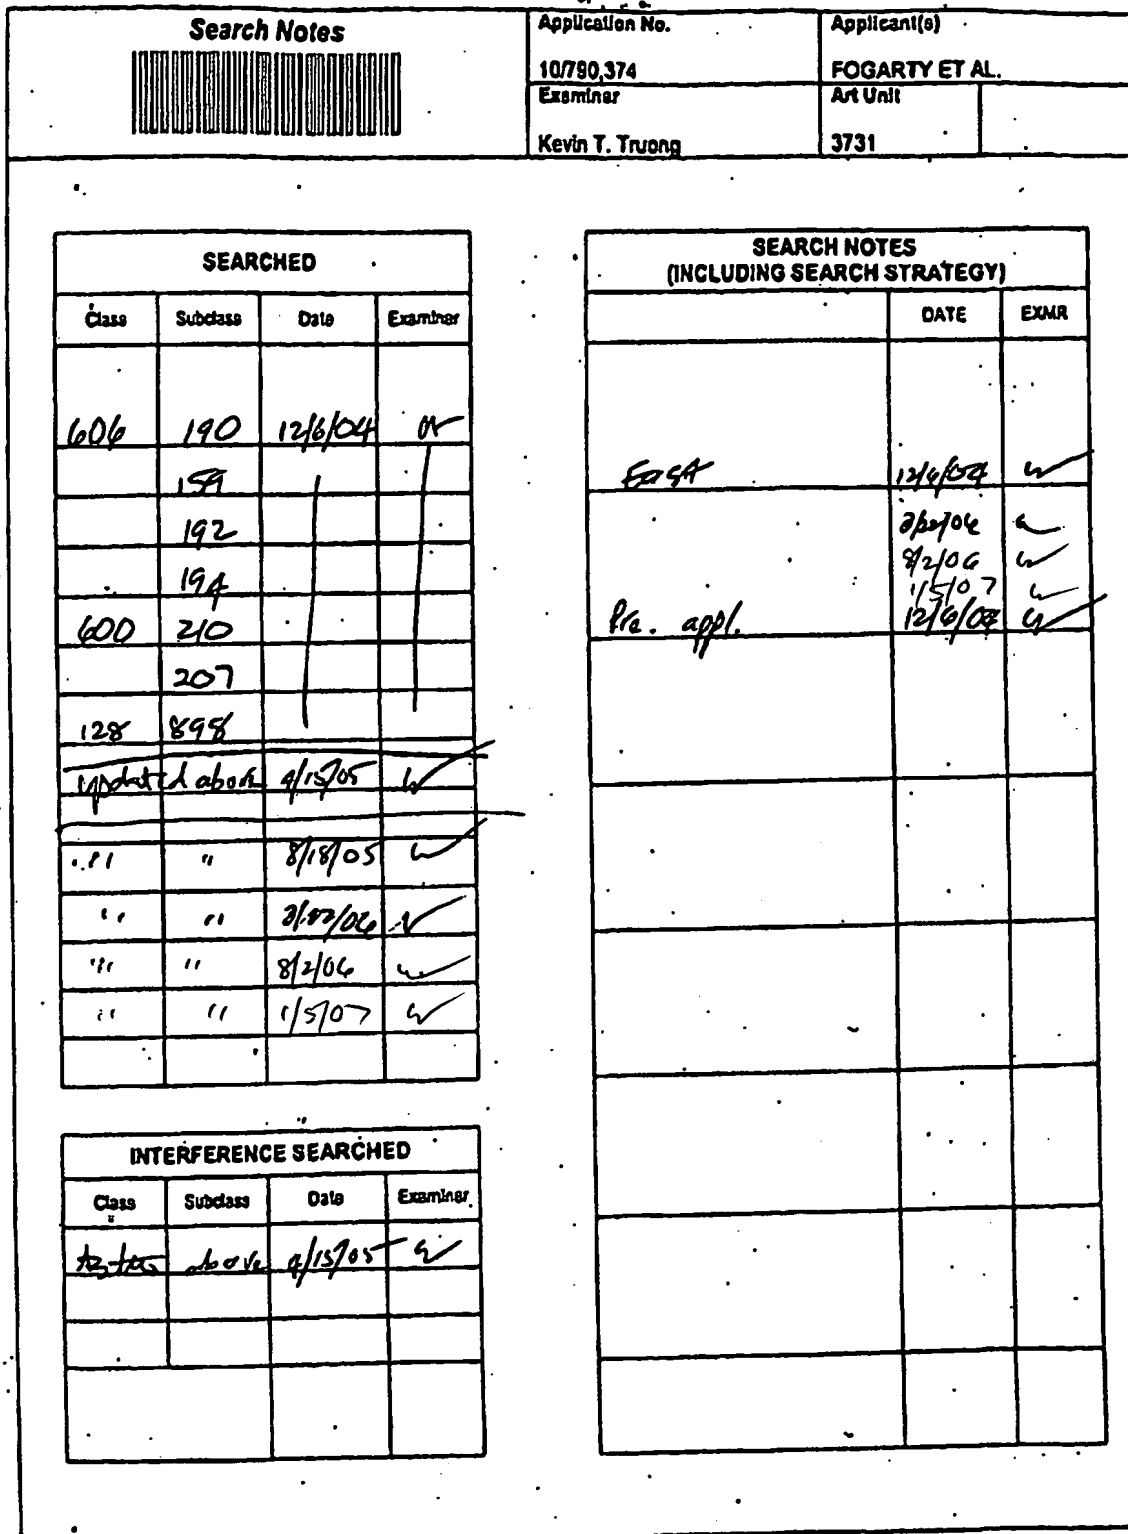 Search Notes
Application No.
Applicant(s)
10/790,374
FOGARTY ET AL.
Examiner
Art Unit
Kevin T. Truong
3731
SEARCHED
Class Subclass Date Examiner
606 190 12/6/04
159
192
194
600 210
207
128 898
updated above 4/15/05
" " 8/18/05
" " 2/22/06
" " 8/2/06
" " 1/5/07
INTERFERENCE SEARCHED
Class Subclass Date Examiner
above 4/15/05
SEARCH NOTES
(INCLUDING SEARCH STRATEGY)
DATE EXMR
East 12/6/04
2/22/06
8/2/06
1/5/07
Pre. appl. 12/6/04